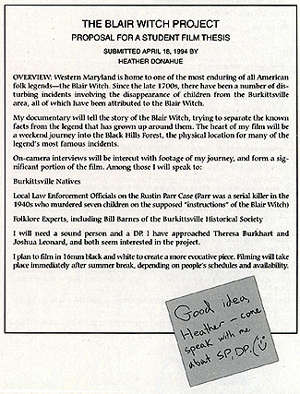 THE BLAIR WITCH PROJECT
PROPOSAL FOR A STUDENT FILM THESIS
SUBMITTED APRIL 18, 1994 BY
HEATHER DONAHUE
OVERVIEW: Western Maryland is home to one of the most enduring of all American
folk legends—the Blair Witch. Since the late 1700s, there have been a number of dis-
turbing incidents involving the disappearance of children from the Burkittsville
area, all of which have been attributed to the Blair Witch.
My documentary will tell the story of the Blair Witch, trying to separate the known
facts from the legend that has grown up around them. The heart of my film will be
a weekend journey into the Black Hills Forest, the physical location for many of the
legend's most famous incidents.
On-camera interviews will be intercut with footage of my journey, and form a sig-
nificant portion of the film. Among those I will speak to:
Burkittsville Natives
Local Law Enforcement Officials on the Rustin Parr Case (Parr was a serial killer in the
1940s who murdered seven children on the supposed "instructions" of the Blair Witch)
Folklore Experts, including Bill Barnes of the Burkittsville Historical Society
I will need a sound person and a DP. I have approached Theresa Burkhart and
Joshua Leonard, and both seem interested in the project.
I plan to film in 16mm black and white to create a more evocative piece. Filming will take
place immediately after summer break, depending on people's schedules and availability.
Good idea,
Heather – come
speak with me
about SP, DP.